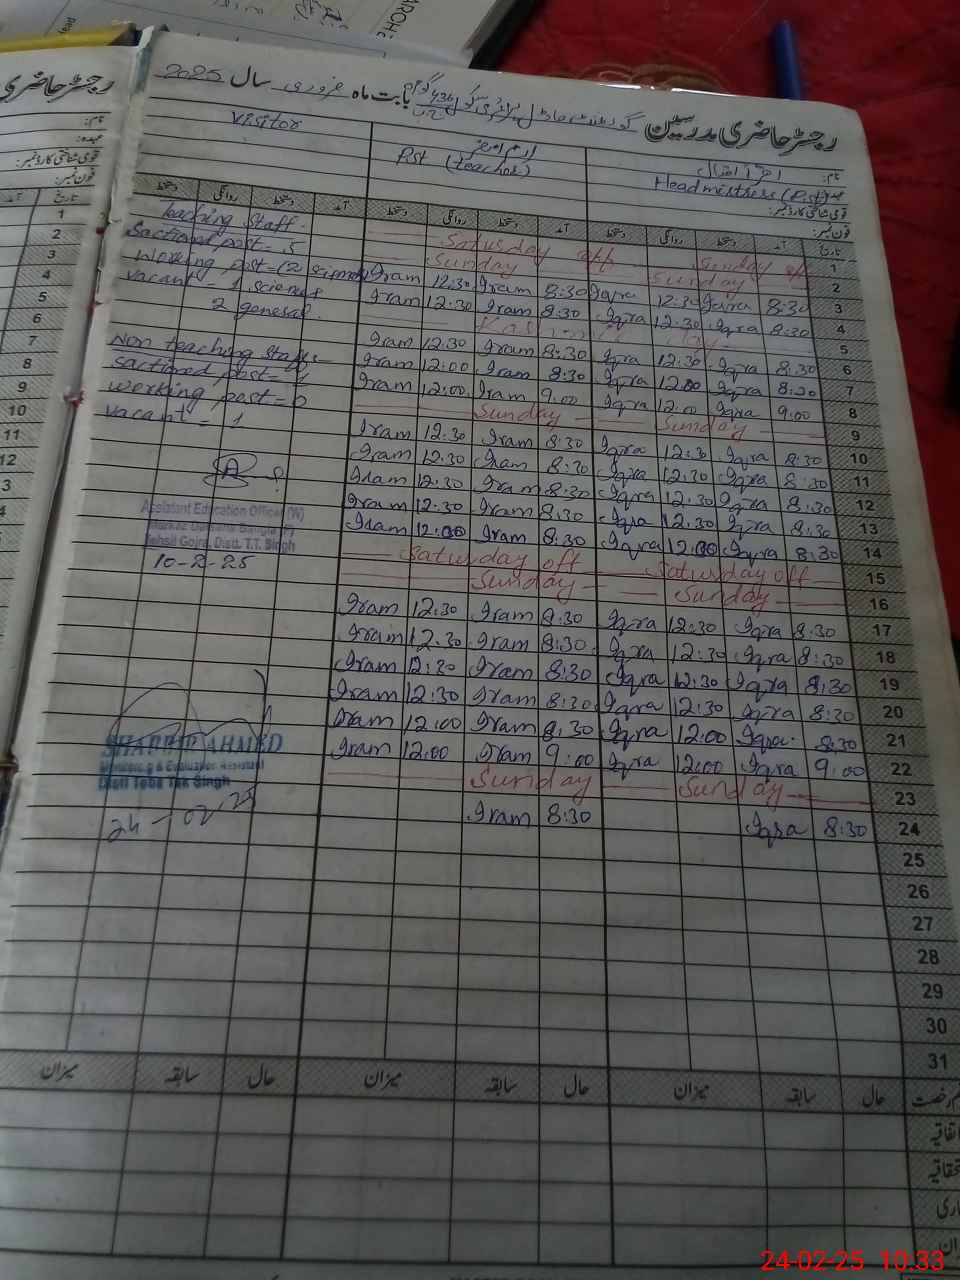 رجسٹر حاضری مدرسین
بابت ماہ فروری سال 2025
Visitor
Pst (teacher)
نام:
Headmistress (Pst)
قومی شناختی کارڈ نمبر:
فون نمبر:
دستخط روانگی دستخط آمد دستخط روانگی دستخط آمد دستخط روانگی دستخط آمد تاریخ
Teaching Staff.
Sactioned post = 5
Working post = (2 science)
Vacant - 1 science
2 general.
Non teaching Staff:-
Sactioned post = 1
Working post = 0
Vacant = 1
Assistant Education Officer (W)
Tehsil Gojra, Distt. T.T. Singh
10-2-25
SHABBIR AHMED
Monitoring & Evaluation Assistant
Distt Toba Tek Singh
24-02-25
Saturday off Saturday off 1
Sunday Sunday 2
Iram 12:30 Iram 8:30 Iqra 12:30 Iqra 8:30 3
Iram 12:30 Iram 8:30 Iqra 12:30 Iqra 8:30 4
Kashmir day 5
Iram 12:30 Iram 8:30 Iqra 12:30 Iqra 8:30 6
Iram 12:00 Iram 8:30 Iqra 12:00 Iqra 8:30 7
Iram 12:00 Iram 9:00 Iqra 12:00 Iqra 9:00 8
Sunday Sunday 9
Iram 12:30 Iram 8:30 Iqra 12:30 Iqra 8:30 10
Iram 12:30 Iram 8:30 Iqra 12:30 Iqra 8:30 11
Iram 12:30 Iram 8:30 Iqra 12:30 Iqra 8:30 12
Iram 12:30 Iram 8:30 Iqra 12:30 Iqra 8:30 13
Iram 12:00 Iram 8:30 Iqra 12:00 Iqra 8:30 14
Saturday off Saturday off 15
Sunday Sunday 16
Iram 12:30 Iram 8:30 Iqra 12:30 Iqra 8:30 17
Iram 12:30 Iram 8:30 Iqra 12:30 Iqra 8:30 18
Iram 12:30 Iram 8:30 Iqra 12:30 Iqra 8:30 19
Iram 12:30 Iram 8:30 Iqra 12:30 Iqra 8:30 20
Iram 12:00 Iram 8:30 Iqra 12:00 Iqra 8:30 21
Iram 12:00 Iram 9:00 Iqra 12:00 Iqra 9:00 22
Sunday Sunday 23
Iram 8:30 Iqra 8:30 24
25
26
27
28
29
30
31
میزان سابقہ حال میزان سابقہ حال میزان سابقہ حال
24-02-25 10:33